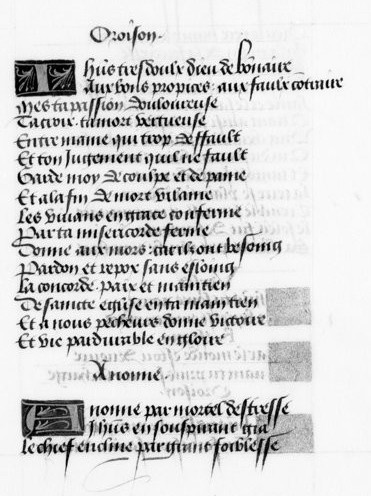 Oroison.
Jhūs tresdoulx dieu de bōnaire
Aux bons propices aux faulx cōtraire
Mes ta passion douloureuse
Ta croix ta mort vertueuse
Entre mame qui trop deffault
Et ton Jugement qui ne fault
Garde moy de coulpe et de paine
Et a la fin de mort vilaine
Les viuans en grace conferme
Par ta misericorde ferme
Donne aux mors car ilz ont besoing
Pardon et repox sans esloing
La concorde paix et maintien
De saincte eglise en ta main tien
Et a nous pecheurs donne victoire
Et vie pardurable en gloire
A nonne
A nonne par mortel destresse
Jhūs en souspirant
le chief encline par grant foiblesse